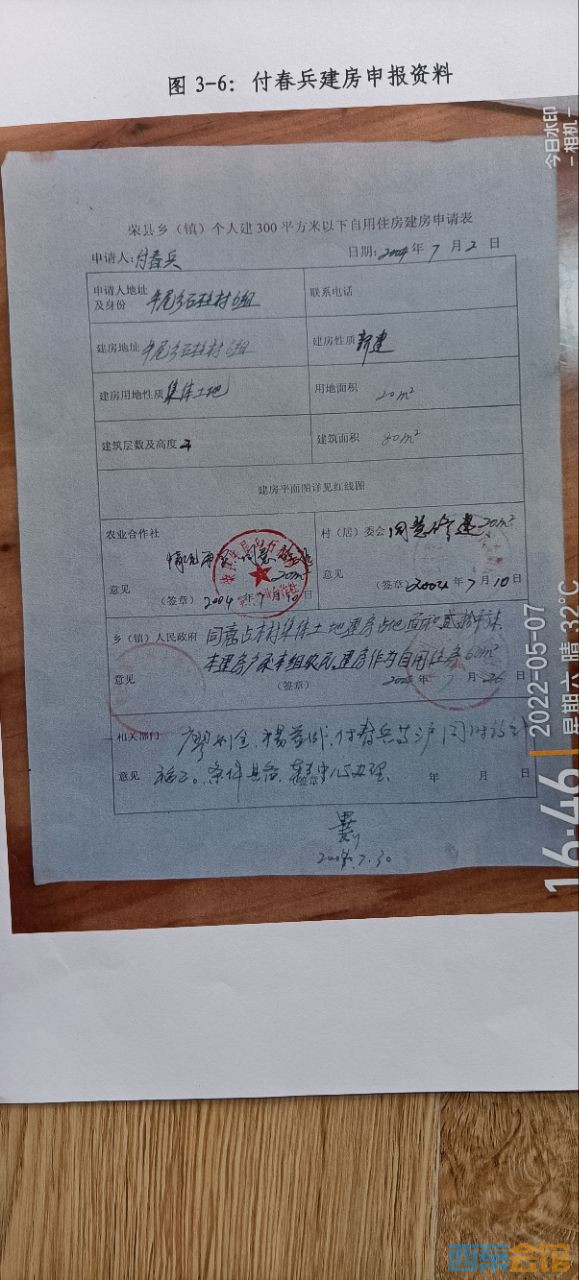 图 3-6：付春兵建房申报资料
荣县乡（镇）个人建300平方米以下自用住房建房申请表
申请人：付春兵 日期：2004年7月2日
申请人地址及身份 石柱村6组 联系电话
建房地址 石柱村6组 建房性质 新建
建房用地性质 集体土地 用地面积 20m²
建筑层数及高度 建筑面积 80m²
建房平面图详见红线图
农业合作社 村（居）委会 同意修建20m²
情况 同意 20m²
意见 意见
（签章）2004年7月10日 （签章）2004年7月10日
乡（镇）人民政府 同意占本村集体土地建房占地面积贰拾平米
本建房户系本组农民，建房作为自用住房
意见 （签章） 7月26日
相关部门 付春兵 户同时
意见 条件具备 办理 年 月 日
2004.7.30
今日水印
-相机-
2022-05-07
星期六 晴 32℃
16:46
西秦会馆